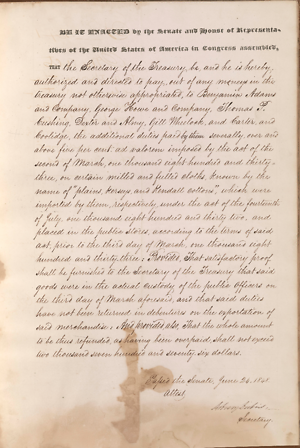 BE IT ENACTED by the Senate and House of Representa-
tives of the United States of America in Congress assembled,
THAT the Secretary of the Treasury, be, and he is hereby,
authorized and directed to pay, out of any moneys in the
treasury not otherwise appropriated, to Benjamin Adams
and Company, George Howe and Company, Thomas T.
Cushing, Dexter and Almy, Gill Wheelock, and Carter, and
Coolidge, the additional duties paid by them severally, over and
above five per cent ad valorem imposed by the act of the
second of March, one thousand eight hundred and thirty-
three, on certain milled and fulled cloths, known by the
name of "plains, kerseys, and Kendall cottons," which were
imported by them, respectively, under the act of the fourteenth
of July, one thousand eight hundred and thirty two, and
placed in the public stores, according to the terms of said
act, prior to the third day of March, one thousand eight
hundred and thirty three: Provided, That satisfactory proof
shall be furnished to the Secretary of the Treasury that said
goods were in the actual custody of the public officers on
the third day of March aforesaid, and that said duties
have not been returned in debenture on the exportation of
said merchandise: And provided also, That the whole amount
to be thus refunded, as having been overpaid, shall not exceed
two thousand seven hundred and seventy six dollars.
Passed the Senate, June 24,
Attest,
Secretary